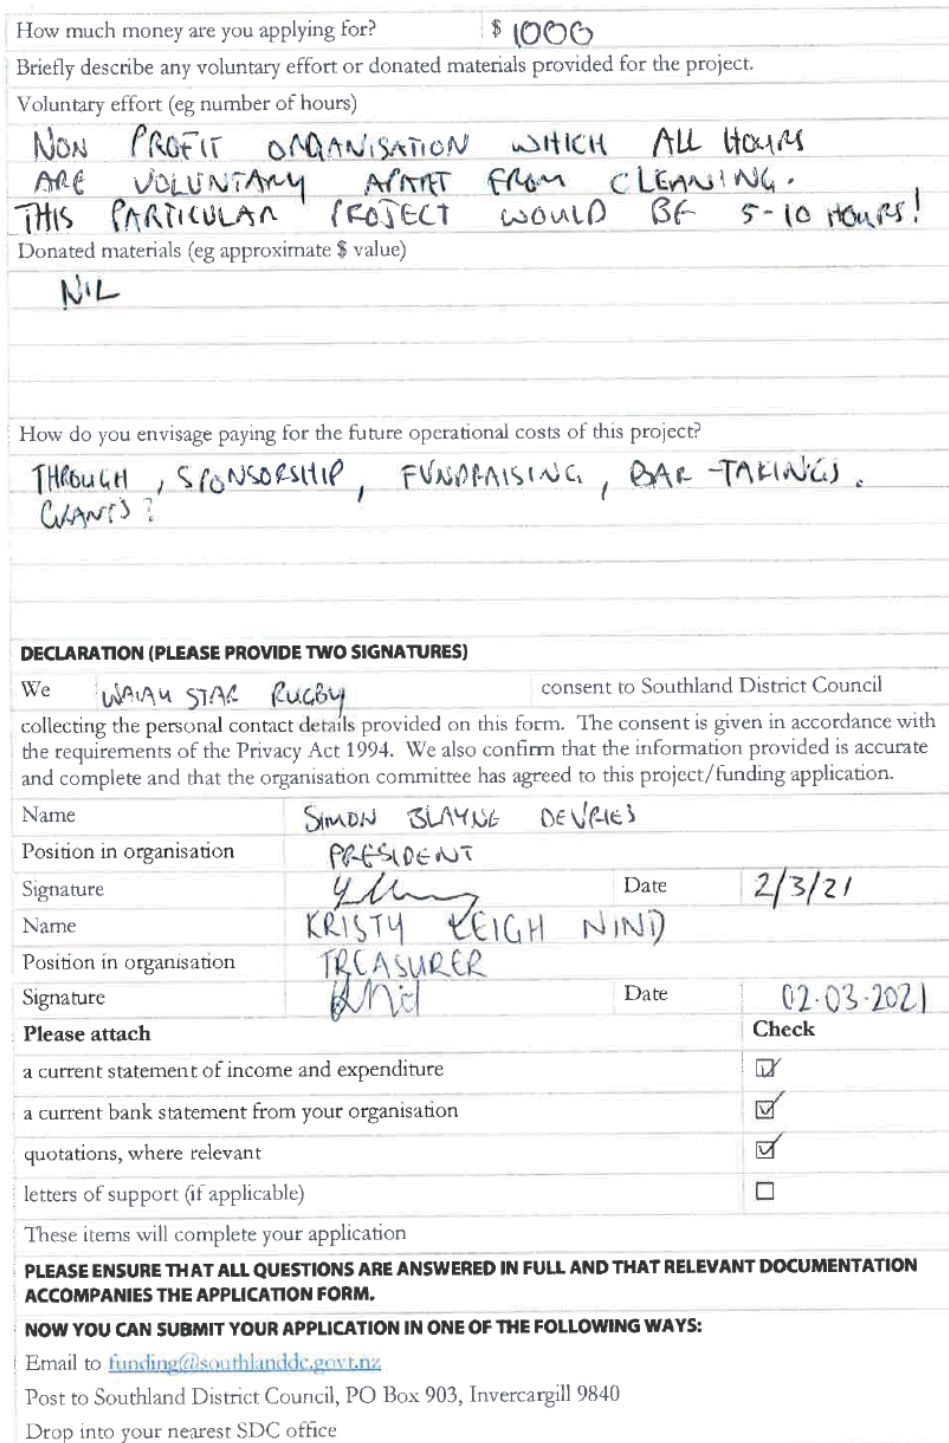 How much money are you applying for? $ 1000
Briefly describe any voluntary effort or donated materials provided for the project.
Voluntary effort (eg number of hours)
NON PROFIT ORGANISATION WHICH ALL HOURS
ARE VOLUNTARY APART FROM CLEANING.
THIS PARTICULAR PROJECT WOULD BE 5-10 HOURS!
Donated materials (eg approximate $ value)
NIL
How do you envisage paying for the future operational costs of this project?
THROUGH , SPONSORSHIP , FUNDRAISING , BAR -TAKINGS .
GRANTS ?
DECLARATION (PLEASE PROVIDE TWO SIGNATURES)
We WAIAU STAR RUGBY consent to Southland District Council
collecting the personal contact details provided on this form. The consent is given in accordance with
the requirements of the Privacy Act 1994. We also confirm that the information provided is accurate
and complete and that the organisation committee has agreed to this project/funding application.
Name SIMON BLAYNE DEVRIES
Position in organisation PRESIDENT
Signature Date 2/3/21
Name KRISTY LEIGH NIND
Position in organisation TREASURER
Signature Date 02.03.2021
Please attach Check
a current statement of income and expenditure
a current bank statement from your organisation
quotations, where relevant
letters of support (if applicable)
These items will complete your application
PLEASE ENSURE THAT ALL QUESTIONS ARE ANSWERED IN FULL AND THAT RELEVANT DOCUMENTATION
ACCOMPANIES THE APPLICATION FORM.
NOW YOU CAN SUBMIT YOUR APPLICATION IN ONE OF THE FOLLOWING WAYS:
Email to funding@southlanddc.govt.nz
Post to Southland District Council, PO Box 903, Invercargill 9840
Drop into your nearest SDC office